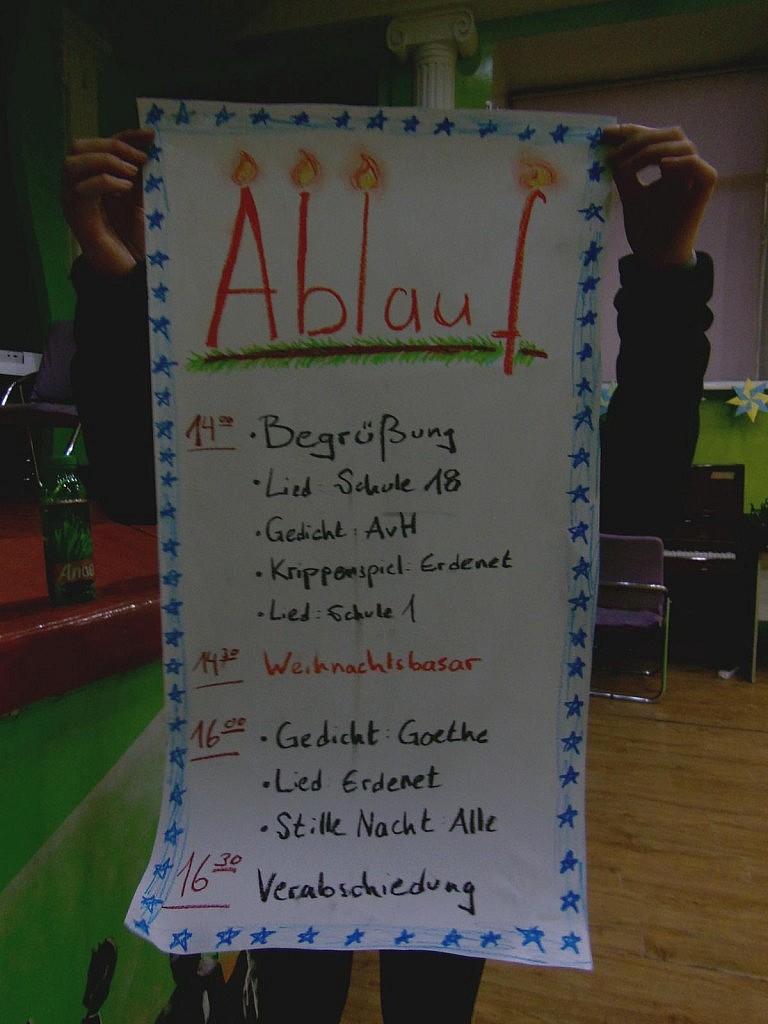 Ablauf
14⁰⁰ · Begrüßung
· Lied: Schule 18
· Gedicht: AvH
· Krippenspiel: Erdenet
· Lied: Schule 1
14³⁰ Weihnachtsbasar
16⁰⁰ · Gedicht: Goethe
· Lied Erdenet
· Stille Nacht Alle
16³⁰ Verabschiedung